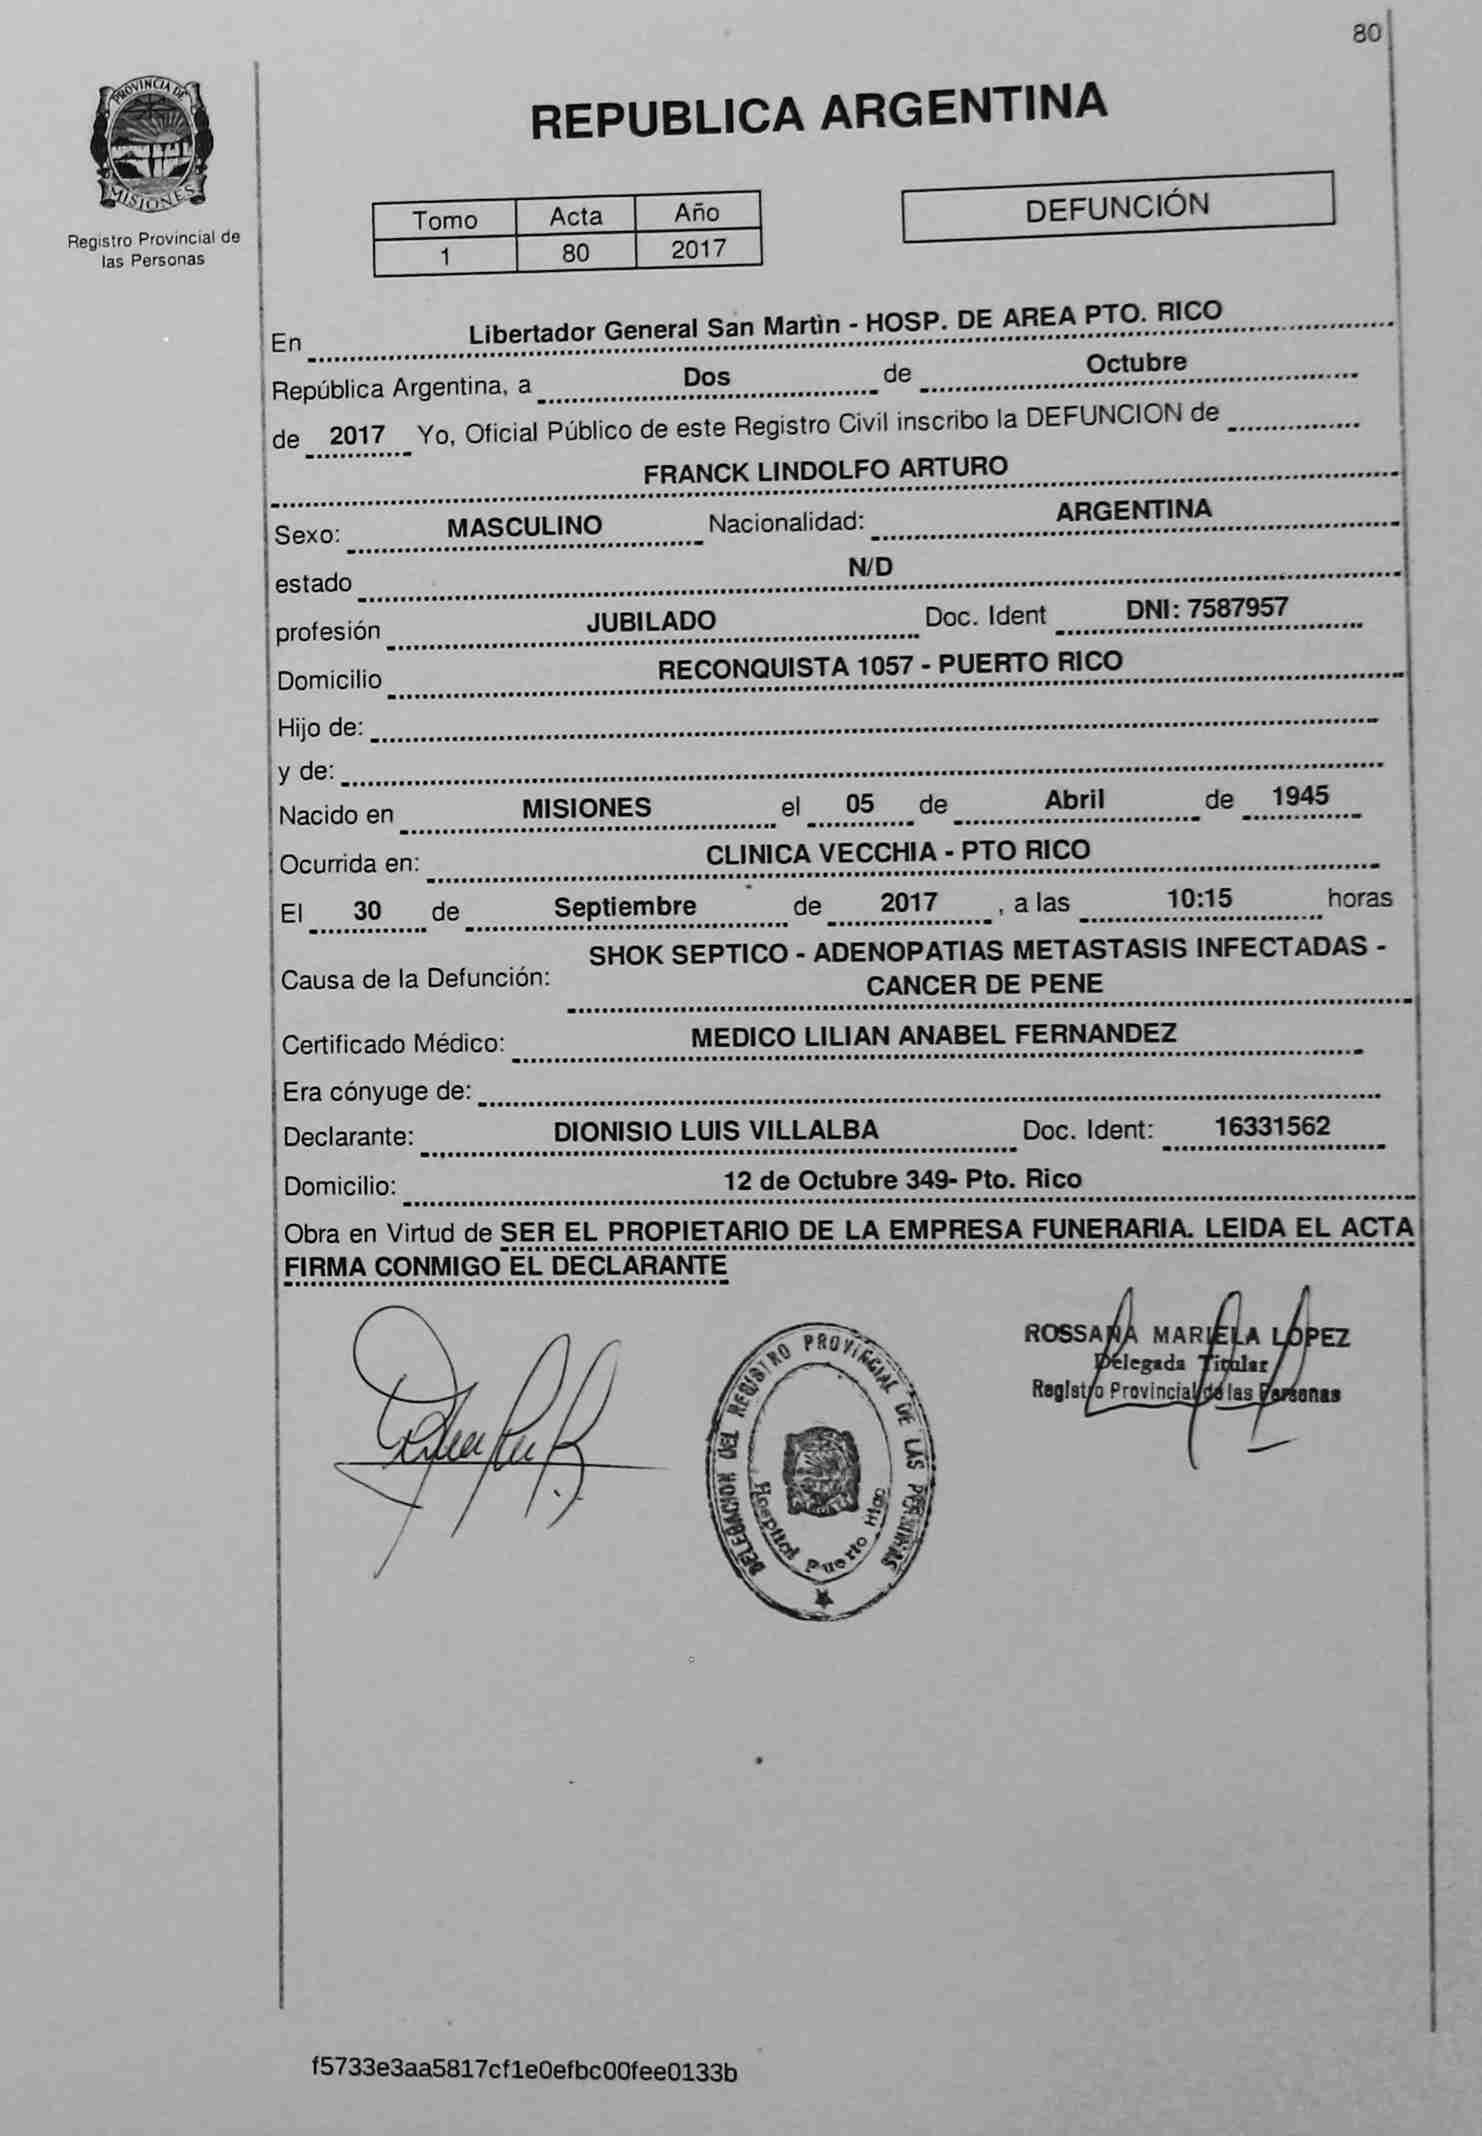 80
PROVINCIA DE
MISIONES
Registro Provincial de
las Personas
REPUBLICA ARGENTINA
Tomo Acta Año
1 80 2017
DEFUNCIÓN
En Libertador General San Martìn - HOSP. DE AREA PTO. RICO
República Argentina, a Dos de Octubre
de 2017 Yo, Oficial Público de este Registro Civil inscribo la DEFUNCION de
FRANCK LINDOLFO ARTURO
Sexo: MASCULINO Nacionalidad: ARGENTINA
estado N/D
profesión JUBILADO Doc. Ident DNI: 7587957
Domicilio RECONQUISTA 1057 - PUERTO RICO
Hijo de:
y de:
Nacido en MISIONES el 05 de Abril de 1945
Ocurrida en: CLINICA VECCHIA - PTO RICO
El 30 de Septiembre de 2017 , a las 10:15 horas
Causa de la Defunción: SHOK SEPTICO - ADENOPATIAS METASTASIS INFECTADAS -
CANCER DE PENE
Certificado Médico: MEDICO LILIAN ANABEL FERNANDEZ
Era cónyuge de:
Declarante: DIONISIO LUIS VILLALBA Doc. Ident: 16331562
Domicilio: 12 de Octubre 349- Pto. Rico
Obra en Virtud de SER EL PROPIETARIO DE LA EMPRESA FUNERARIA. LEIDA EL ACTA
FIRMA CONMIGO EL DECLARANTE
ROSSANA MARIELA LOPEZ
Delegada Titular
Registro Provincial de las Personas
DELEGACION DEL REGISTRO PROVINCIAL DE LAS PERSONAS
Hospital Puerto Rico
f5733e3aa5817cf1e0efbc00fee0133b